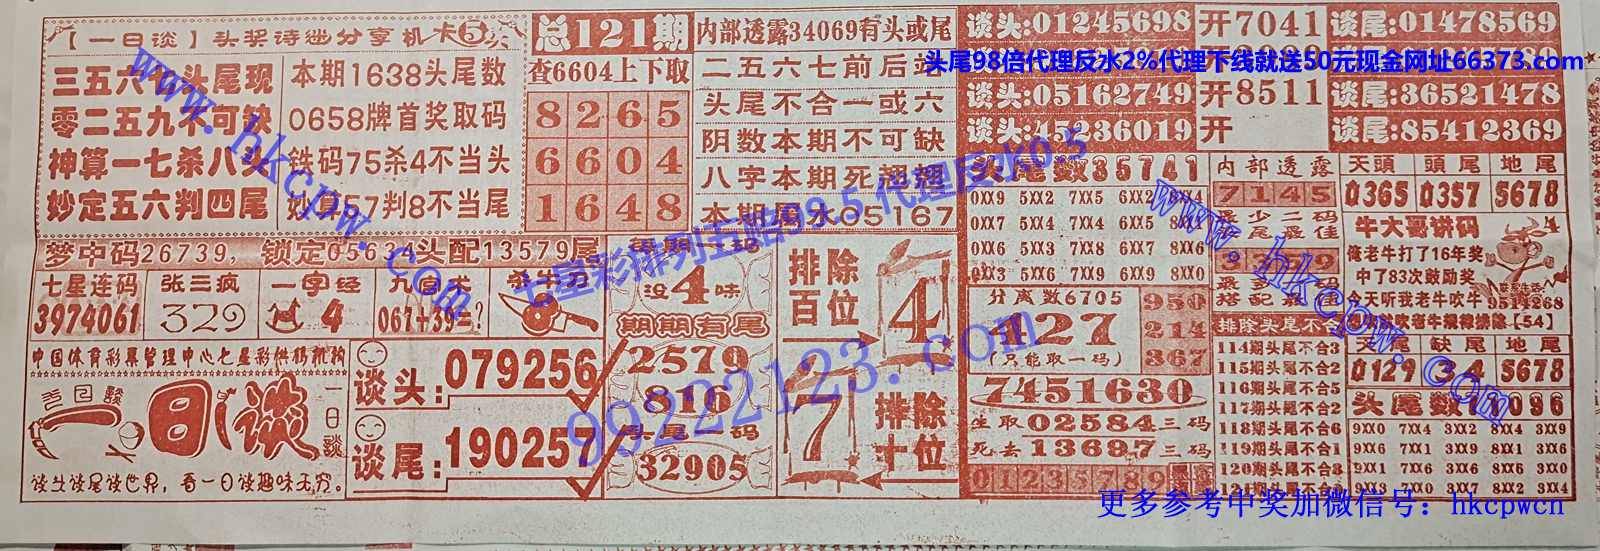 【一日谈】头奖诗谜分享机卡⑤奖
三五六 头尾现
零二五九不可缺
神算一七杀八头
妙定五六判四尾
本期1638头尾数
0658牌首奖取码
铁码75杀4不当头
妙算57判8不当尾
总121期
查6604上下取
8265
6604
1648
内部透露34069有头或尾
二五六七前后站
头尾不合一或六
阴数本期不可缺
八字本期死翘翘
本期风水05167
谈头:01245698 开7041 谈尾:01478569
头尾98倍代理反水2%代理下线就送50元现金网址66373.com
谈头:05162749 开8511 谈尾:36521478
谈头:45236019 开 谈尾:85412369
梦中码26739,锁定05634头配13579尾
七星连码
3974061
张三疯
329
一字经
4
九宫术
067+39=?
杀牛刀
每期一码
没4味
期期有尾
2579
816
头尾一码
32905
排除百位
4
7
排除十位
中国体育彩票管理中心七星彩供稿机构
一日谈
一日谈
谈头谈尾谈世界,看一日谈趣味无穷。
谈头:079256
谈尾:190257
头尾数35741
0XX9 5XX2 7XX5 6XX2
0XX7 5XX4 7XX4 6XX5 8XX1
0XX6 5XX3 7XX8 6XX7 8XX6
0XX3 5XX6 7XX9 6XX9 8XX0
分离数6705
127
(只能取一码)
950
214
367
7451630
生取02584三码
死去13697三码
0123456789
内部透露
7145
最少二码
头尾最佳
3359
最多 码
搭配最佳
排除头尾不合
114期头尾不合3
115期头尾不合2
116期头尾不合5
117期头尾不合2
118期头尾不合6
119期头尾不合1
120期头尾不合3
天頭 頭尾 地尾
0365 0357 5678
牛大哥讲码
俺老牛打了16年奖
中了83次鼓励奖
今天听我老牛吹牛
9514268
老牛规律排除【54】
头尾 缺尾 地尾
0129 34 5678
头尾数 1096
9XX0 7XX4 3XX2 8XX4 3XX9
9XX6 7XX1 3XX6 8XX1 3XX6
9XX1 7XX6 3XX6 8XX6 3XX0
9XX3 7XX0 3XX7 8XX2 3XX4
www.hkcpw.com
七星彩排列五赔99.5代理反水0.5
99222123.com
www.hkcpw.com
更多参考中奖加微信号: hkcpwcn